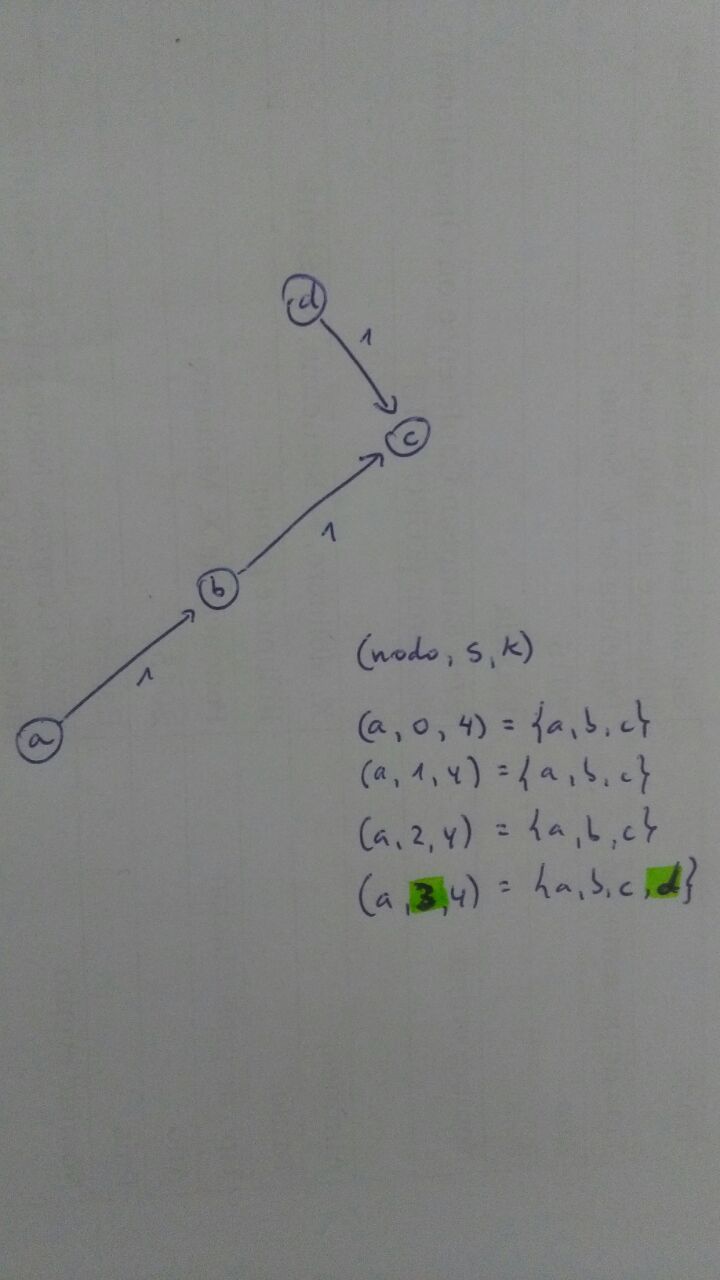 d
1
c
1
b
1
a
(nodo, s, k)
(a, 0, 4) = {a, b, c}
(a, 1, 4) = {a, b, c}
(a, 2, 4) = {a, b, c}
(a, 3, 4) = {a, b, c, d}